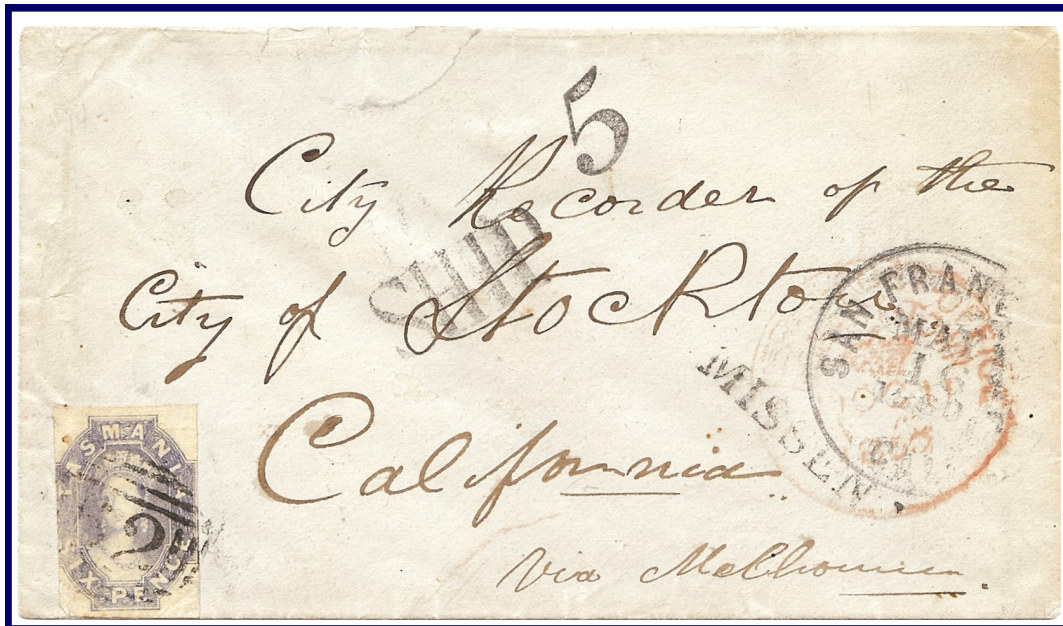 5
City Recorder of the
SHIP
City of Stockton
California
via Melbourne.
MISSENT
SAN FRANC
MAY
16
TASMANIA
SIX PENCE